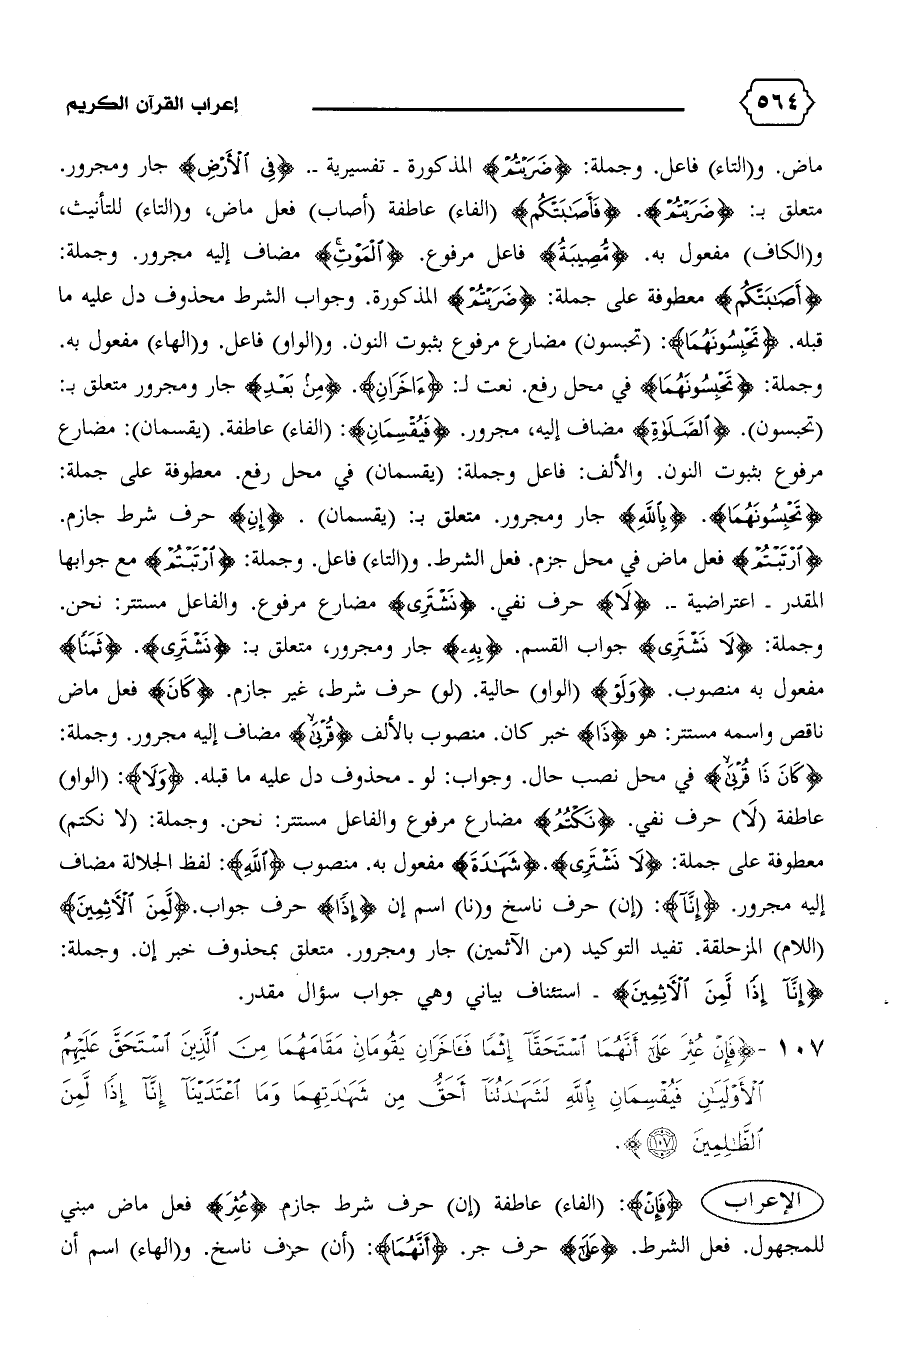 ٥٦٤ إعراب القرآن الكريم
ماض. و(التاء) فاعل. وجملة: ﴿ضَرَبْتُمْ﴾ المذكورة ـ تفسيرية ـ. ﴿فِي ٱلْأَرْضِ﴾ جار ومجرور.
متعلق بـ: ﴿ضَرَبْتُمْ﴾. ﴿فَأَصَـٰبَتْكُم﴾ (الفاء) عاطفة (أصاب) فعل ماض، و(التاء) للتأنيث،
و(الكاف) مفعول به. ﴿مُّصِيبَةُ﴾ فاعل مرفوع. ﴿ٱلْمَوْتِۚ﴾ مضاف إليه مجرور. وجملة:
﴿أَصَـٰبَتْكُم﴾ معطوفة على جملة: ﴿ضَرَبْتُمْ﴾ المذكورة. وجواب الشرط محذوف دل عليه ما
قبله. ﴿تَحْبِسُونَهُمَا﴾: (تحبسون) مضارع مرفوع بثبوت النون. و(الواو) فاعل. و(الهاء) مفعول به.
وجملة: ﴿تَحْبِسُونَهُمَا﴾ في محل رفع. نعت لـ: ﴿ءَاخَرَانِ﴾. ﴿مِنۢ بَعْدِ﴾ جار ومجرور متعلق بـ:
(تحبسون). ﴿ٱلصَّلَوٰةِ﴾ مضاف إليه، مجرور. ﴿فَيُقْسِمَانِ﴾: (الفاء) عاطفة. (يقسمان): مضارع
مرفوع بثبوت النون. والألف: فاعل وجملة: (يقسمان) في محل رفع. معطوفة على جملة:
﴿تَحْبِسُونَهُمَا﴾. ﴿بِٱللَّهِ﴾ جار ومجرور. متعلق بـ: (يقسمان) . ﴿إِنِ﴾ حرف شرط جازم.
﴿ٱرْتَبْتُمْ﴾ فعل ماض في محل جزم. فعل الشرط. و(التاء) فاعل. وجملة: ﴿ٱرْتَبْتُمْ﴾ مع جوابها
المقدر ـ اعتراضية ـ. ﴿لَا﴾ حرف نفي. ﴿نَشْتَرِى﴾ مضارع مرفوع. والفاعل مستتر: نحن.
وجملة: ﴿لَا نَشْتَرِى﴾ جواب القسم. ﴿بِهِۦ﴾ جار ومجرور، متعلق بـ: ﴿نَشْتَرِى﴾. ﴿ثَمَنًا﴾
مفعول به منصوب. ﴿وَلَوْ﴾ (الواو) حالية. (لو) حرف شرط، غير جازم. ﴿كَانَ﴾ فعل ماض
ناقص واسمه مستتر: هو ﴿ذَا﴾ خبر كان. منصوب بالألف ﴿قُرْبَىٰۙ﴾ مضاف إليه مجرور. وجملة:
﴿كَانَ ذَا قُرْبَىٰۙ﴾ في محل نصب حال. وجواب: لو ـ محذوف دل عليه ما قبله. ﴿وَلَا﴾: (الواو)
عاطفة (لَا) حرف نفي. ﴿نَكْتُمُ﴾ مضارع مرفوع والفاعل مستتر: نحن. وجملة: (لا نكتم)
معطوفة على جملة: ﴿لَا نَشْتَرِى﴾. ﴿شَهَـٰدَةَ﴾ مفعول به. منصوب ﴿ٱللَّهِ﴾: لفظ الجلالة مضاف
إليه مجرور. ﴿إِنَّآ﴾: (إن) حرف ناسخ و(نا) اسم إن ﴿إِذًا﴾ حرف جواب. ﴿لَّمِنَ ٱلْأَثِمِينَ﴾
(اللام) المزحلقة. تفيد التوكيد (من الآثمين) جار ومجرور. متعلق بمحذوف خبر إن. وجملة:
﴿إِنَّآ إِذًا لَّمِنَ ٱلْأَثِمِينَ﴾ ـ استئناف بياني وهي جواب سؤال مقدر.
١٠٧ - ﴿فَإِنْ عُثِرَ عَلَىٰٓ أَنَّهُمَا ٱسْتَحَقَّآ إِثْمًا فَـَٔاخَرَانِ يَقُومَانِ مَقَامَهُمَا مِنَ ٱلَّذِينَ ٱسْتَحَقَّ عَلَيْهِمُ
ٱلْأَوْلَيَـٰنِ فَيُقْسِمَانِ بِٱللَّهِ لَشَهَـٰدَتُنَآ أَحَقُّ مِن شَهَـٰدَتِهِمَا وَمَا ٱعْتَدَيْنَآ إِنَّآ إِذًا لَّمِنَ
ٱلظَّـٰلِمِينَ ١٠٧﴾.
الإعراب ﴿فَإِنْ﴾: (الفاء) عاطفة (إن) حرف شرط جازم ﴿عُثِرَ﴾ فعل ماض مبني
للمجهول. فعل الشرط. ﴿عَلَىٰٓ﴾ حرف جر. ﴿أَنَّهُمَا﴾: (أن) حرف ناسخ. و(الهاء) اسم أن